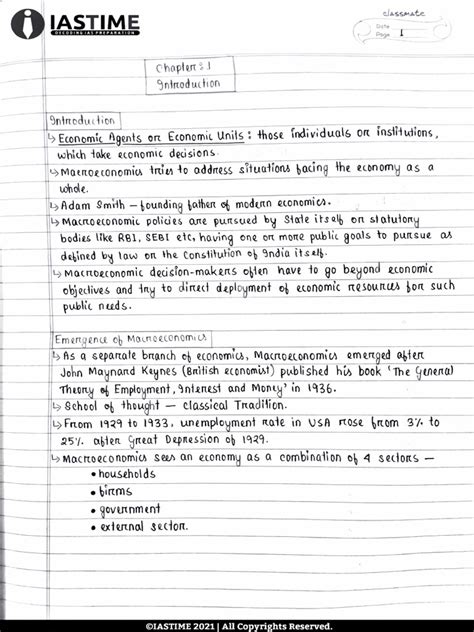 IASTIME
DECODING IAS PREPARATION
classmate
Date
Page 1
Chapter: 1
Introduction
Introduction
↳ Economic Agents or Economic Units: those individuals or institutions,
which take economic decisions.
↳ Macroeconomics tries to address situations facing the economy as a
whole.
↳ Adam Smith – founding father of modern economics.
↳ Macroeconomic policies are pursued by State itself or statutory
bodies like RBI, SEBI etc, having one or more public goals to pursue as
defined by law or the Constitution of India itself.
↳ Macroeconomic decision-makers often have to go beyond economic
objectives and try to direct deployment of economic resources for such
public needs.
Emergence of Macroeconomics
↳ As a separate branch of economics, Macroeconomics emerged after
John Maynard Keynes (British economist) published his book 'The General
Theory of Employment, Interest and Money' in 1936.
↳ School of thought — classical Tradition.
↳ From 1929 to 1933, unemployment rate in USA rose from 3% to
25% after Great Depression of 1929.
↳ Macroeconomics sees an economy as a combination of 4 sectors —
• households
• firms
• government
• external sector.
©IASTIME 2021 | All Copyrights Reserved.